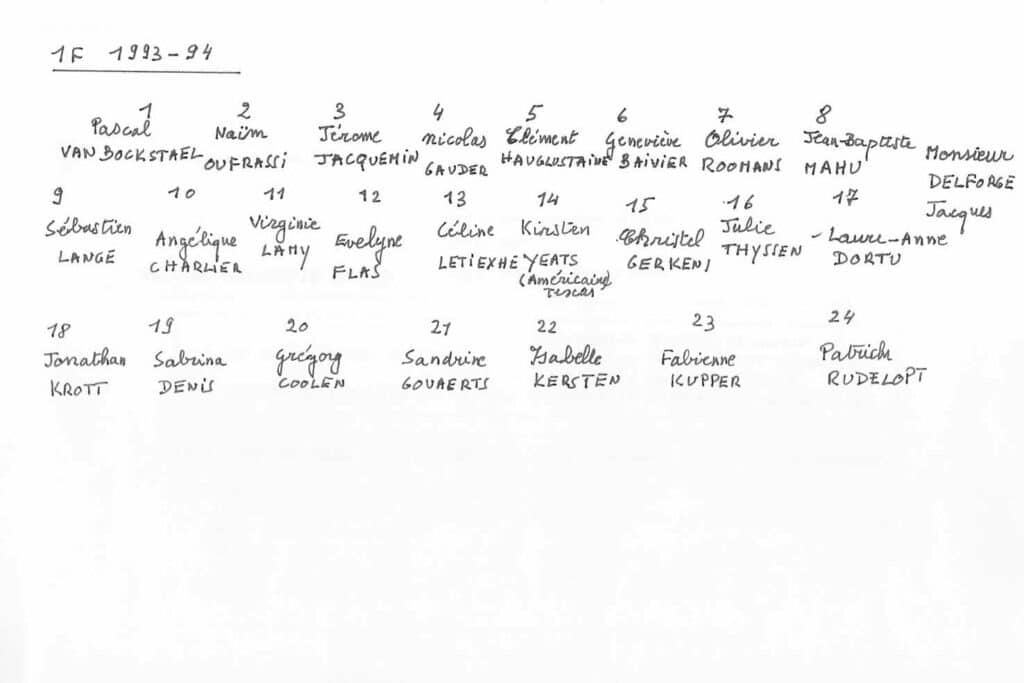 1F 1993-94
1 2 3 4 5 6 7 8
Pascal Naïm Jérome Nicolas Clément Geneviève Olivier Jean-Baptiste Monsieur
VAN BOCKSTAEL OUFRASSI JACQUEMIN GAUDER HAUGLUSTAINE BAIVIER ROOMANS MAHU DELFORGE
Jacques
9 10 11 12 13 14 15 16 17
Sébastien Angélique Virginie Evelyne Céline Kirsten Christel Julie Laure-Anne
LANGE CHARLIER LAMY FLAS LETIEXHE YEATS GERKENS THYSSEN DORTU
(Américaine
Texas)
18 19 20 21 22 23 24
Jonathan Sabrina Grégory Sandrine Isabelle Fabienne Patrick
KROTT DENIS COOLEN GOVAERTS KERSTEN KUPPER RUDELOPT